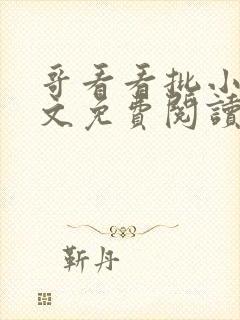 哥看看批小
文免费閱讀
靳丹